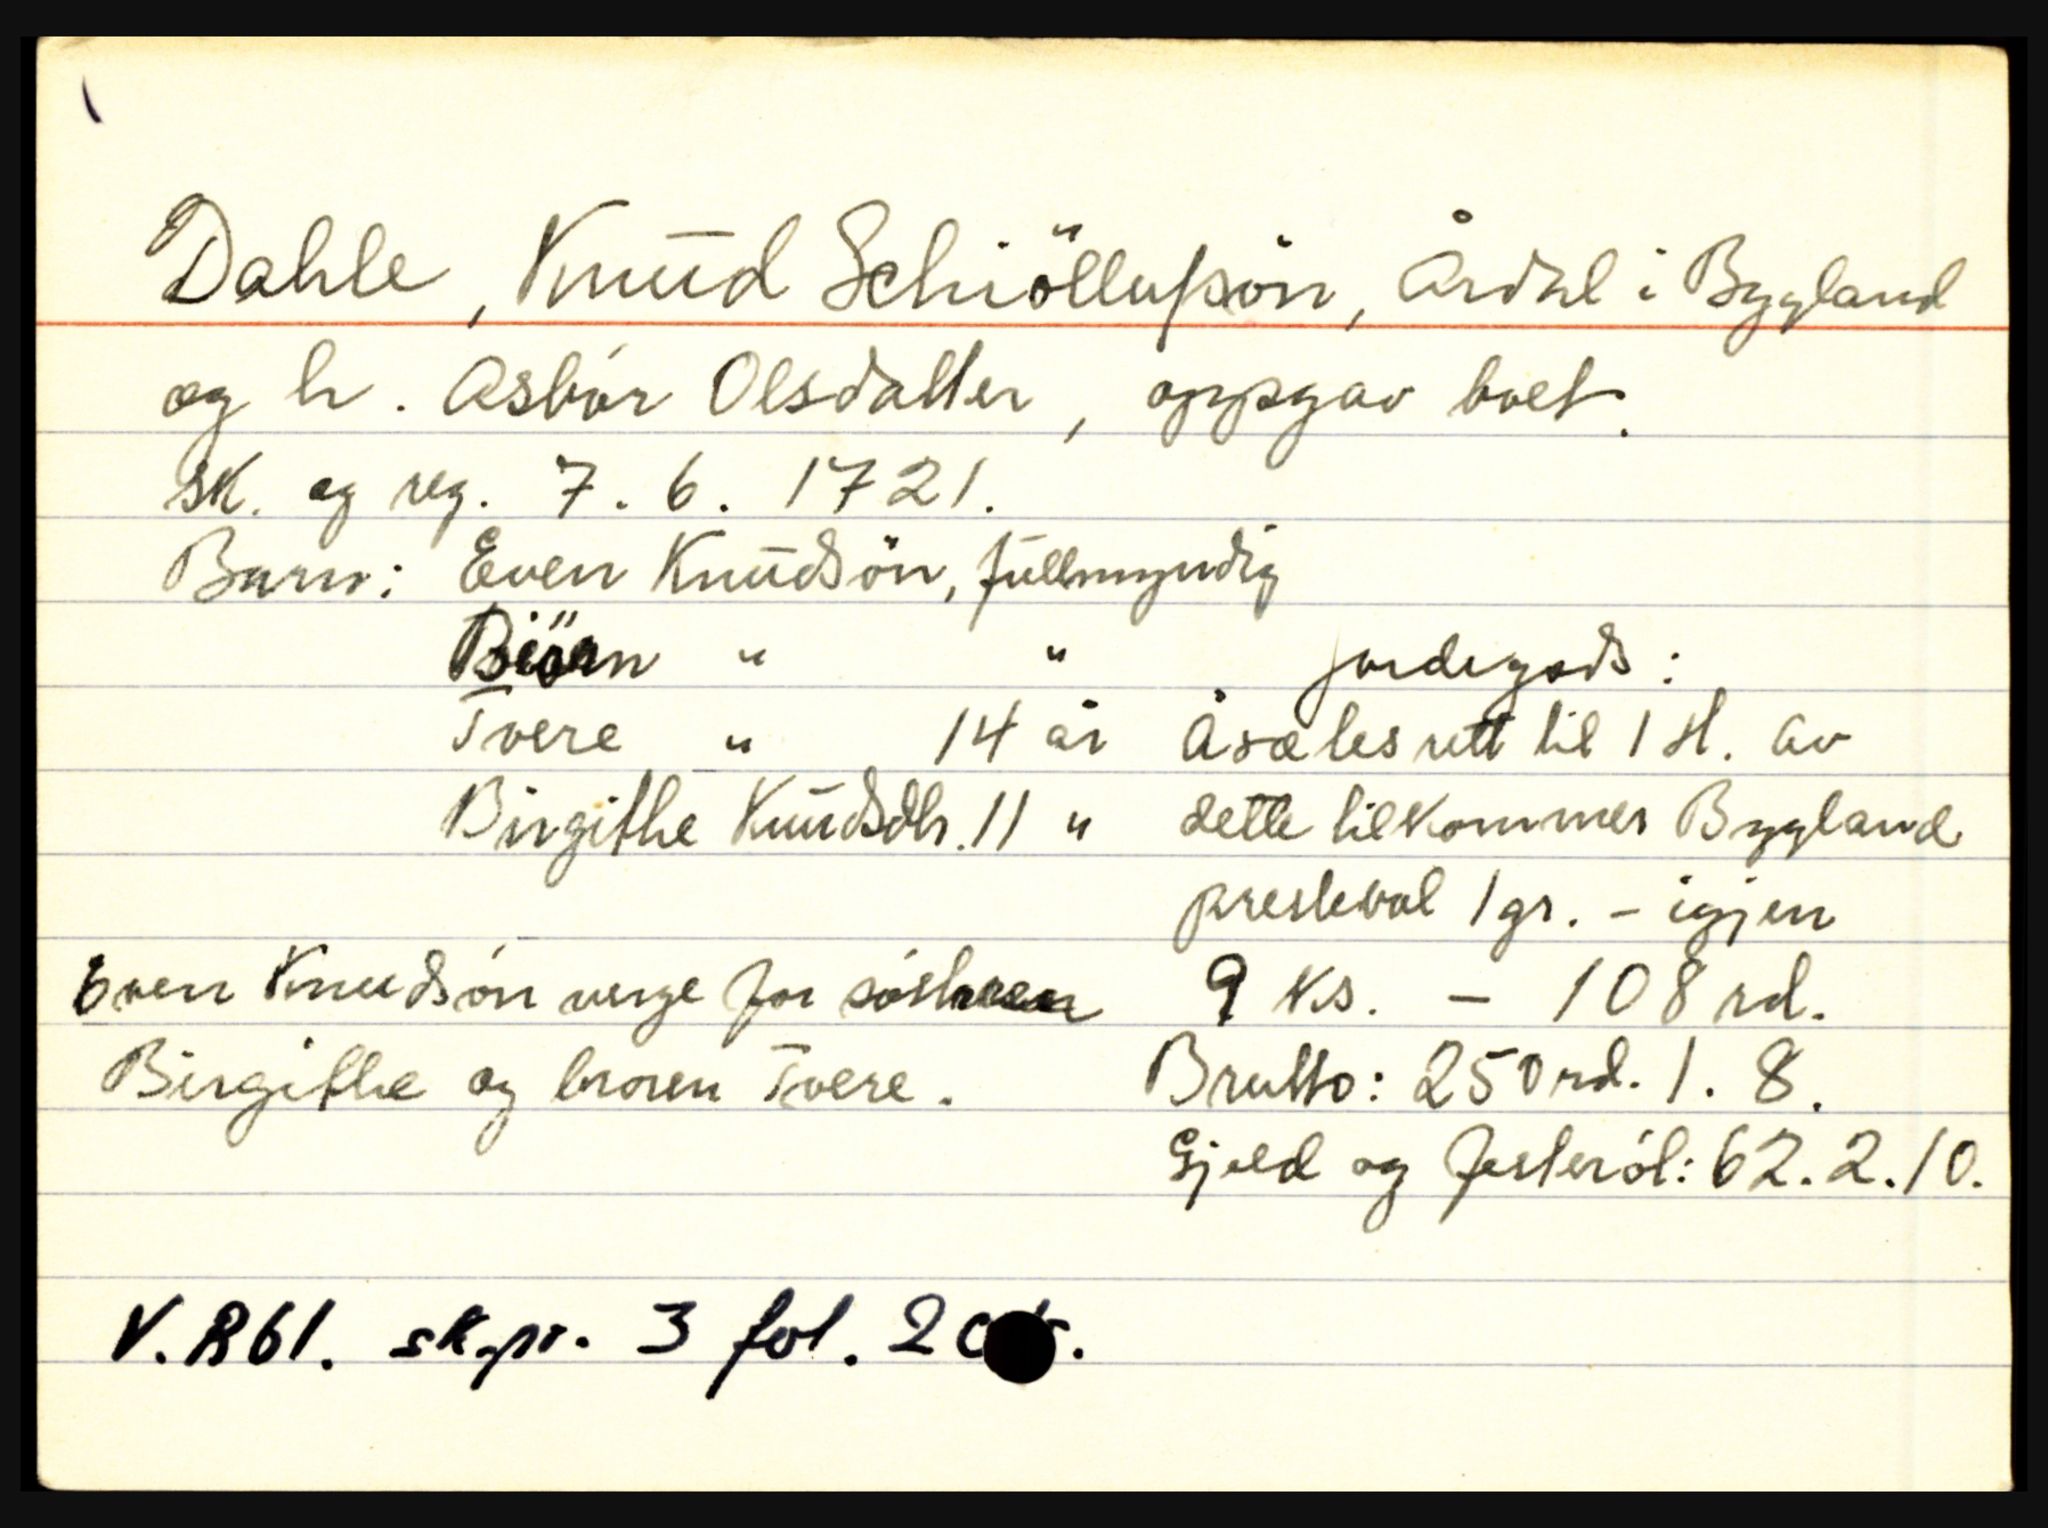 Dahle, Knud Schiöllufsön, Årdal i Bygland
og h. Asbör Olsdatter, oppgav boet.
sk. og reg. 7. 6. 1721.
Barn: Even Knudsön, fullmyndig
Biörn " "
Tvere " 14 år
Birgithe Knudsdtr. 11 "
Jordegods:
Åsæles rett til 1 H. av
dette tilkommer Bygland
prestebol 1 gr. - igjen
9 Ks. - 108 rd.
Brutto: 250 rd. 1. 8.
Gjeld og festeröl: 62. 2. 10.
Even Knudsön verge for söstren
Birgithe og broren Tvere.
V. B 61. sk.pr. 3 fol.